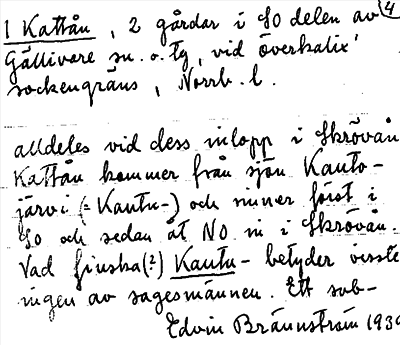 4
1 Kattån, 2 gårdar i SO delen av
Gällivare sn. o. tg, vid Överkalix'
sockengräns, Norrb. l.
alldeles vid dess inlopp i Skrövån
Kattån kommer från sjön Kauto-
järvi (= Kautu-) och rinner först i
SO och sedan åt NO in i Skrövån.
Vad finska(?) Kautu- betyder visste
ingen av sagesmännen. Ett sub-
Edvin Brännström 1930